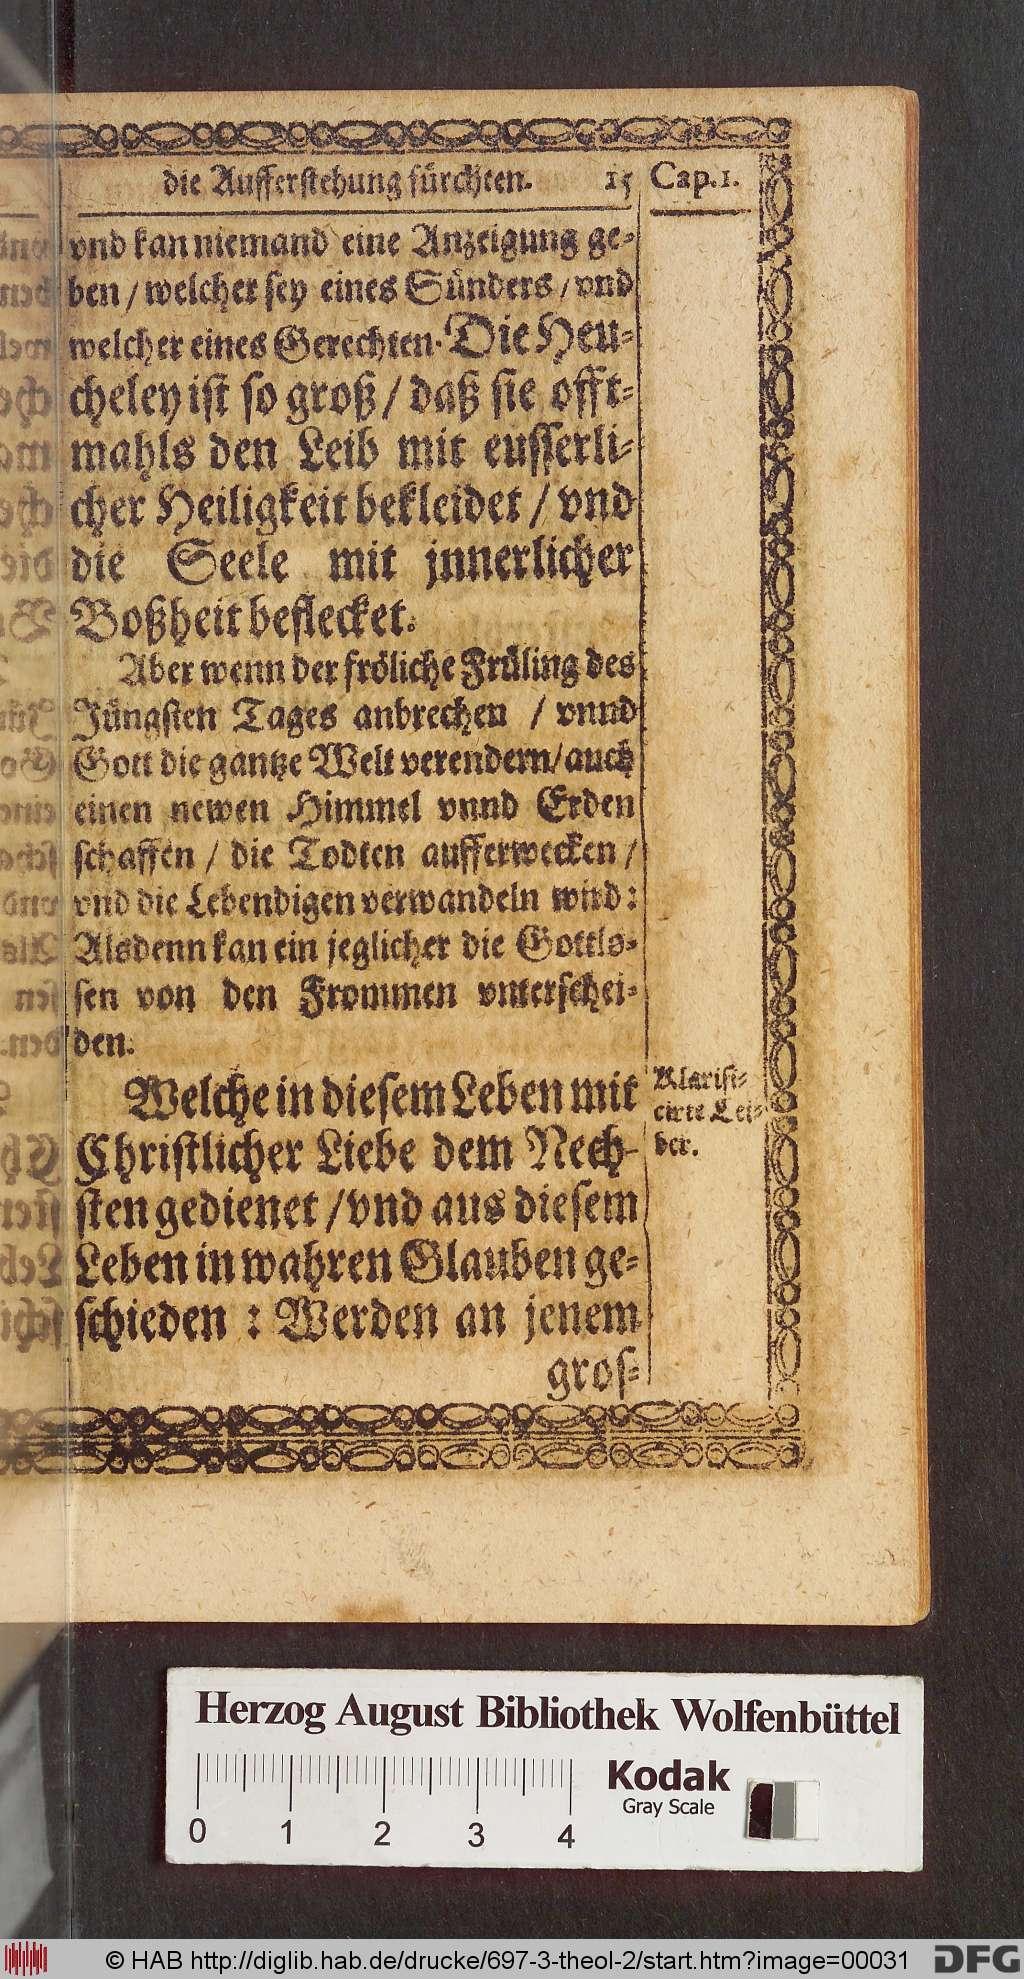 die Aufferstehung fürchten. 15 Cap.1.
vnd kan niemand eine Anzeigung ge-
ben / welcher sey eines Sünders / vnd
welcher eines Gerechten. Die Heu-
cheley ist so groß / daß sie offt-
mahls den Leib mit eusserli-
cher Heiligkeit bekleidet / vnd
die Seele mit jnnerlicher
Boßheit beflecket.
Aber wenn der fröliche Früling des
Jüngsten Tages anbrechen / vnnd
Gott die gantze Welt verendern / auch
einen newen Himmel vnnd Erden
schaffen / die Todten aufferwecken /
vnd die Lebendigen verwandeln wird:
Alsdenn kan ein jeglicher die Gottlo-
sen von den Frommen vnterschei-
den.
Welche in diesem Leben mit
Christlicher Liebe dem Nech-
sten gedienet / vnd aus diesem
Leben in wahren Glauben ge-
schieden : Werden an jenem
gros-
Klarifi-
cirte Lei-
ber.
Herzog August Bibliothek Wolfenbüttel
Kodak
Gray Scale
0 1 2 3 4
© HAB http://diglib.hab.de/drucke/697-3-theol-2/start.htm?image=00031
DFG